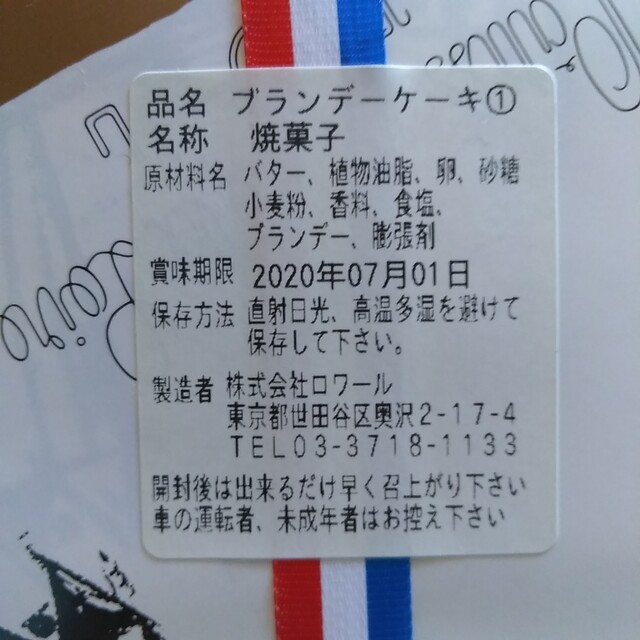 品名 ブランデーケーキ①
名称 焼菓子
原材料名 バター、植物油脂、卵、砂糖
小麦粉、香料、食塩、
ブランデー、膨張剤
賞味期限 2020年07月01日
保存方法 直射日光、高温多湿を避けて
保存して下さい。
製造者 株式会社ロワール
東京都世田谷区奥沢2-17-4
TEL03-3718-1133
開封後は出来るだけ早く召上がり下さい
車の運転者、未成年者はお控え下さい